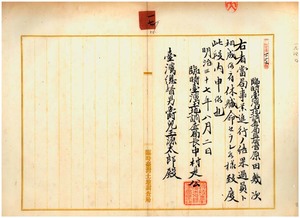 臨時臺灣土地調査局屬原田幾次
右者當局事業進行ノ結果過員ト
相成候ニ付休職命セラレ候様致度
此段内申候也
明治三十七年八月二日
臨時臺灣土地調査局長中村是公
臺灣總督男爵兒玉源太郎殿
臨時臺灣土地調査局